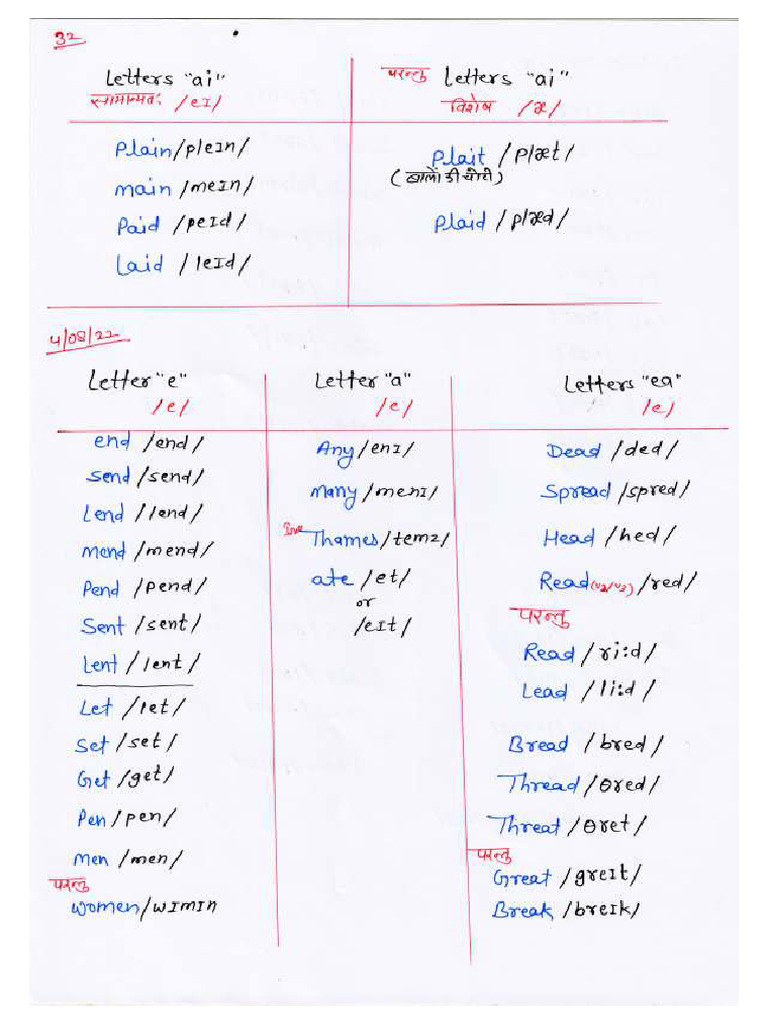 32
Letters "ai"
सामान्यतः /eɪ/
Plain /pleɪn/
main /meɪn/
Paid /peɪd/
Laid /leɪd/
परन्तु Letters "ai"
विशेष /æ/
Plait /plæt/
Plaid /plæd/
4/08/22
Letter "e"
/e/
end /end/
Send /send/
Lend /lend/
Mend /mend/
Pend /pend/
Sent /sent/
Lent /lent/
Let /let/
Set /set/
Get /get/
Pen /pen/
Men /men/
परन्तु
Women /wɪmɪn
Letter "a"
/e/
Any /enɪ/
Many /menɪ/
Thames /temz/
ate /et/
or
/eɪt/
Letters "ea"
/e/
Dead /ded/
Spread /spred/
Head /hed/
Read (V2/V3) /red/
परन्तु
Read /ri:d/
Lead /li:d/
Bread /bred/
Thread /θred/
Threat /θret/
परन्तु
Great /greɪt/
Break /breɪk/